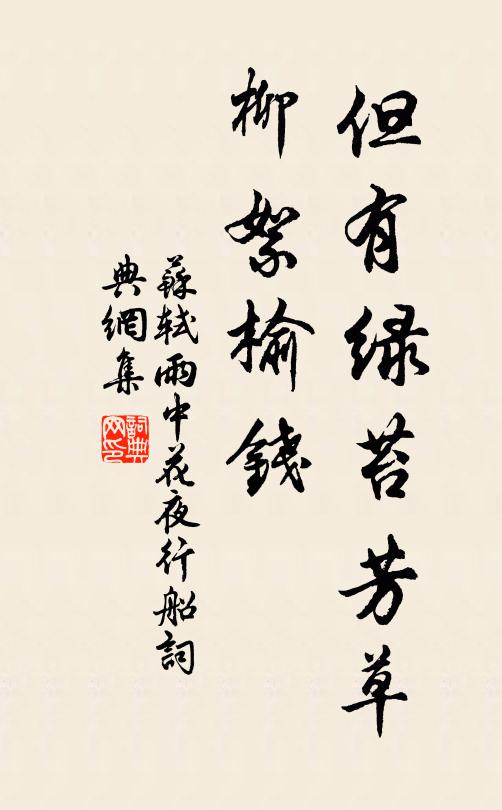 但有绿苔芳草
柳絮榆錢
蘇軾雨中花夜行船詞
典網集
詞典网印